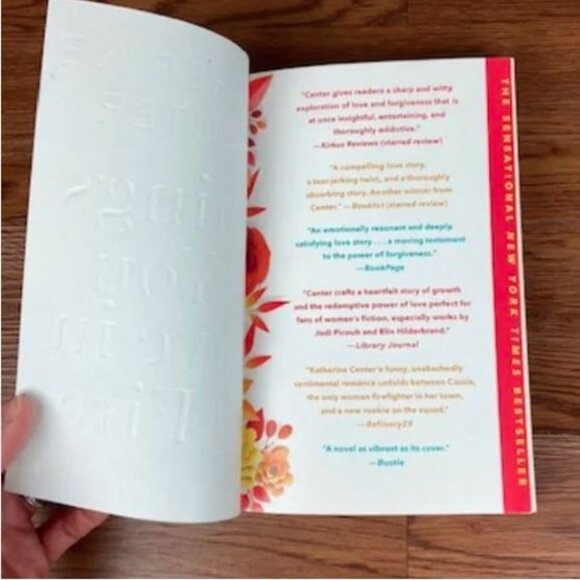 "Center gives readers a sharp and witty
exploration of love and forgiveness that is
at once insightful, entertaining, and
thoroughly addictive."
—Kirkus Reviews (starred review)
"A compelling love story,
a tear-jerking twist, and a thoroughly
absorbing story. Another winner from
Center." —Booklist (starred review)
"An emotionally resonant and deeply
satisfying love story . . . a moving testament
to the power of forgiveness."
—BookPage
"Center crafts a heartfelt story of growth
and the redemptive power of love perfect for
fans of women's fiction, especially works by
Jodi Picoult and Elin Hilderbrand."
—Library Journal
"Katherine Center's funny, unabashedly
sentimental romance unfolds between Cassie,
the only woman firefighter in her town,
and a new rookie on the squad."
—Refinery29
"A novel as vibrant as its cover."
—Bustle
THE SENSATIONAL NEW YORK TIMES BESTSELLER